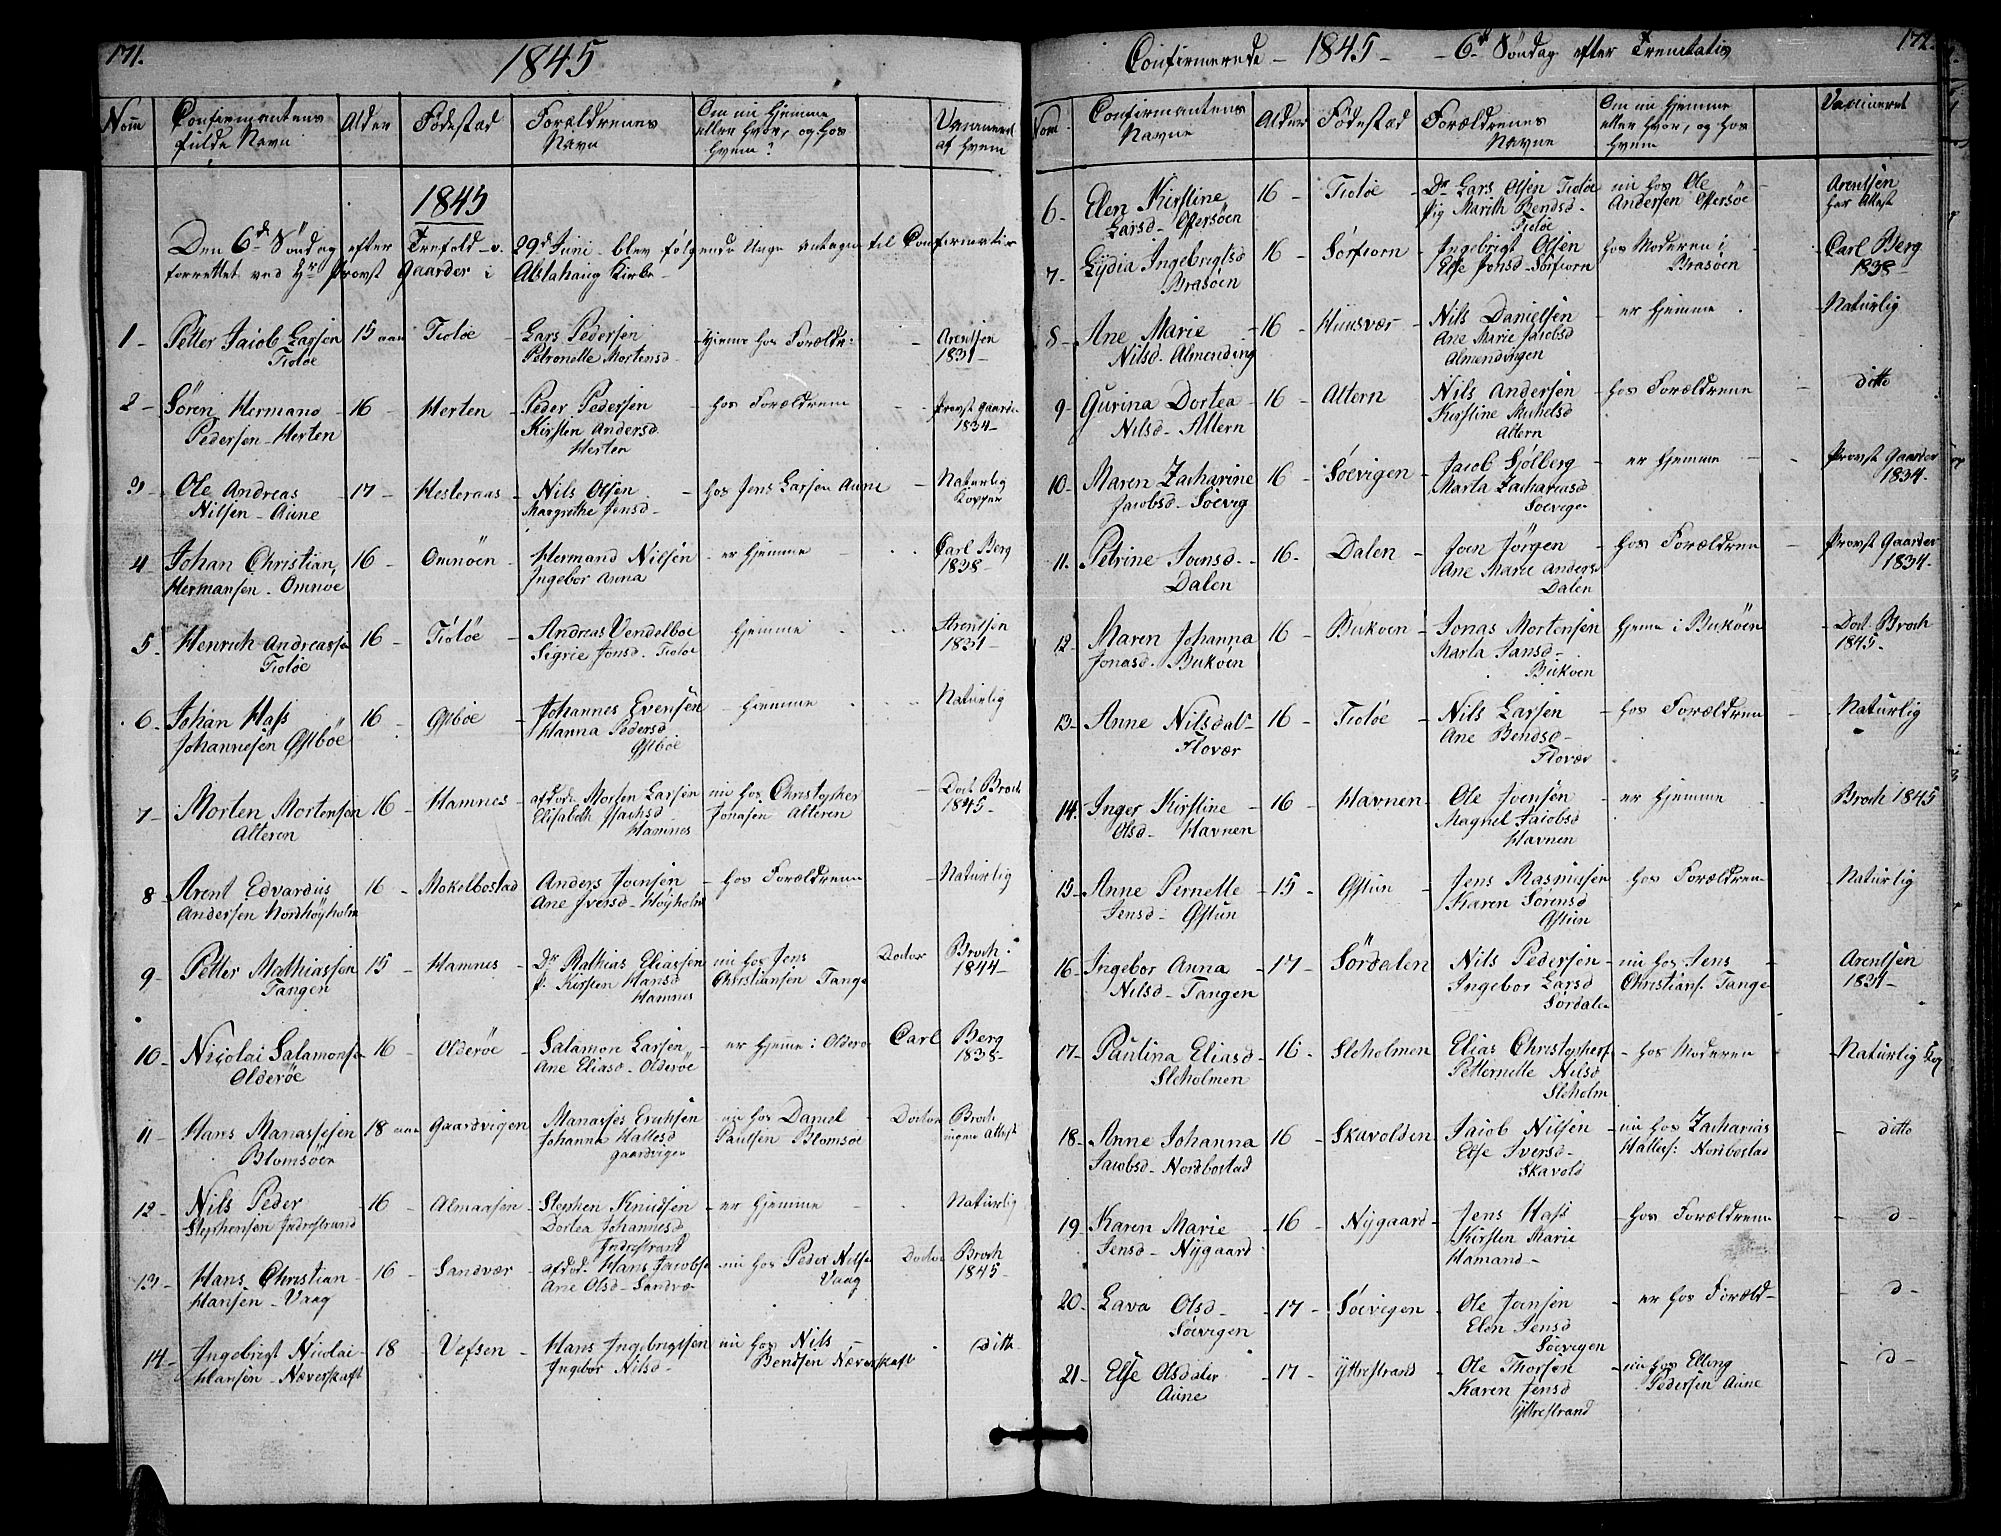 171.
1845
Nom
Confirmantens fulde Navn
Alder
Fødestad
Forældrenes Navn
Om nu hjemme eller hvor, og hos hvem?
Vaccineret af hvem
1845
Den 6de Søndag efter Trefold - v. 29de Juni blev følgende Unge antagne til Confirmation
forrettet ved Hr Provst Gaarder i Alstahaug Kirke -
1 - Petter Jacob Larsen Tioløe - 15 aar - Tioløe - Lars Pedersen Petronelle Mortensd - Hjeme hos Forældr: - Arentsen 1831 -
2 - Sören Hermand Pedersen - Herten - 16 - Herten - Peder Pedersen Kirsten Andersd Herten - hos Forældrene - Provst Gaarder 1834 -
3 - Ole Andreas Nilsen - Aune - 17 - Hesteraas - Nils Olsen Margrethe Jensd - - hos Jens Larsen Aune - Naturlig Kopper
4 - Johan Christian Hermansen - Omnøe - 16 - Omnöen - Hermand Nilsen Ingebor Anna - er hjemme - Carl Berg 1838 -
5 - Henrich Andreassen Tioløe - 16 - Tioløe - Andreas Vendelboe Sigrie Jonsd - Tioløe - hjemme - Arentsen 1831 -
6 - Johan Hass Johannesen Østbøe - 16 - Østbøe - Johannes Evensen Hanna Pedersd Østbøe - hjemme - Naturlig
7 - Morten Mortensen Alteren - 16 - Hamnes - afdøde Morten Larsen Elisabeth Isachsd Hamnes - nu hos Christopher Jonasen Alteren - Doct Broch 1845 -
8 - Arent Edvardus Andersen Nordhöyholm - 16 - Mokelbostad - Anders Joensen Ane Iversd - Höyholm - hos Forældrene - Naturlig
9 - Petter Mathiassen Tangen - 15 - Hamnes - Dr Mathias Eliassen p. Kirsten Hansd Hamnes - nu hos Jens Christiansen Tange - Doctor Broch 1844 -
10 - Nicolai Salamonse Olderøe - 16 - Olderøe - Salamon Larsen Ane Eliasd - Olderøe - er hjeme i Olderø - Carl Berg 1838 -
11 - Hans Manassesen Blomsöen - 18 aar - Gaardvigen - Manasses Erichsen Johanna Hallesd Gaardvigen - nu hos Daniel Paulsen Blomsøe - Doctor Broch ingen Attest
12 - Nils Peder Stephensen Indrestrand - 16 - Almarsen - Stephen Knudsen Dortea Johannesd Indrestrand - er hjemme - Naturlig
13 - Hans Christian Hansen - Vaag - 16 - Sandvær - afdød. Hans Jacobse Ane Olsd - Sandvæ - nu hos Peder Nilse Vaag - Doctor Broch 1845 -
14 - Ingebrigt Nicolai Hansen - Næverskaft - 18 - Vefsen - Hans Ingebrigtsen Ingebor Nilsd - nu hos Nils Bendsen Næverskaft - ditto
172.
Confirmerede - 1845 - - 6te Søndag efter Trenitatis
Nom
Confirmantens Navne
Alder
Fødestad
Forældrenes Navne
Om nu hjemme eller hvor, og hos hvem
Vacineret
6 - Elen Kirstine Larsd - Offersöen - 16 - Tioløe - Dr Lars Olsen Tioløe Pig Marith Bendsd - Tioløe - nu hos Ole Andersen Offersøe - Arentsen har Attest
7 - Lydia Ingebrigtsd Brasöen - 16 - Sørfiorn - Ingebrigt Olsen Else Jonsd - Sørfiorn - hos Moderen i Brasöen - Carl Berg 1838 -
8 - Ane Marie Nilsd - Almending - 16 - Huusvær - Nils Danielsen Ane Marie Jacobsd Almendingen - er hjemme - Naturlig
9 - Gurina Dortea Nilsd - Altern - 16 - Altern - Nils Andersen Kirstine Michelsd Altern - hos Forældrene - ditto
10 - Maren Zacharine Jacobsd - Söevig - 16 - Söevigen - Jacob Sjölberg Marta Zachariasd Soevigen - er hjemme - Provst Gaarder 1834 -
11. Petrine Joensd - Dalen - 16 - Dalen - Joen Jörgen Ane Marie Anders Dalen - hos Forældrene - Provst Gaarder 1834 -
12 - Maren Johanna Jonasd - Bukøen - 16 - Bukøen - Jonas Mortensen Marta Jansd - Bukøen - hjeme i Bukøen - Doct. Broch 1845 -
13 - Anne Nilsdal - Flovær - 16 - Tioløe - Nils Larsen Ane Bendsd - Flovær - hos Forældrene - Naturlig
14. Inger Kirstine Olsd - Havnen - 16 - Havnen - Ole Joensen Magnel Jacobsd Havnen - er hjemme - Broch 1845
15 - Anne Pernelle Jensd - Østun - 15 - Østun - Jens Rasmussen Karen Sörensd Østun - hos Forældrene - Naturlig
16 - Ingebor Anna Nilsd - Tangen - 17 - Sördalen - Nils Pedersen Ingebor Larsd Sördalen - nu hos Jens Christians: Tange - Arentsen 1831 -
17 - Paulina Eliasd Sleholmen - 16 - Sleholmen - Elias Christophers Petternelle Nilsd Sleholm - hos Moderen - Naturlig Kop
18 - Anne Johanna Jacobsd - Nordbostad - 16 - Skavolden - Jacob Nilsen Else Iversd - Skavold - nu hos Zacharias Halles: Nordbostad - ditto
19 - Karen Marie Jensd - Nygaard - 16 - Nygaard - Jens Hass Kirsten Marie Hamand - - hos Forældrene - d
20 - Lava Olsd - Söevigen - 17 - Söevigen - Ole Jansen Elen Jensd Söevigen - er hos Foræld - - d -
21 - Else Olsdater Aune - 17 - Yttrestrand - Ole Thorsen Karen Jensd Yttrestrand - nu hos Elling Pedersen Aune - d -